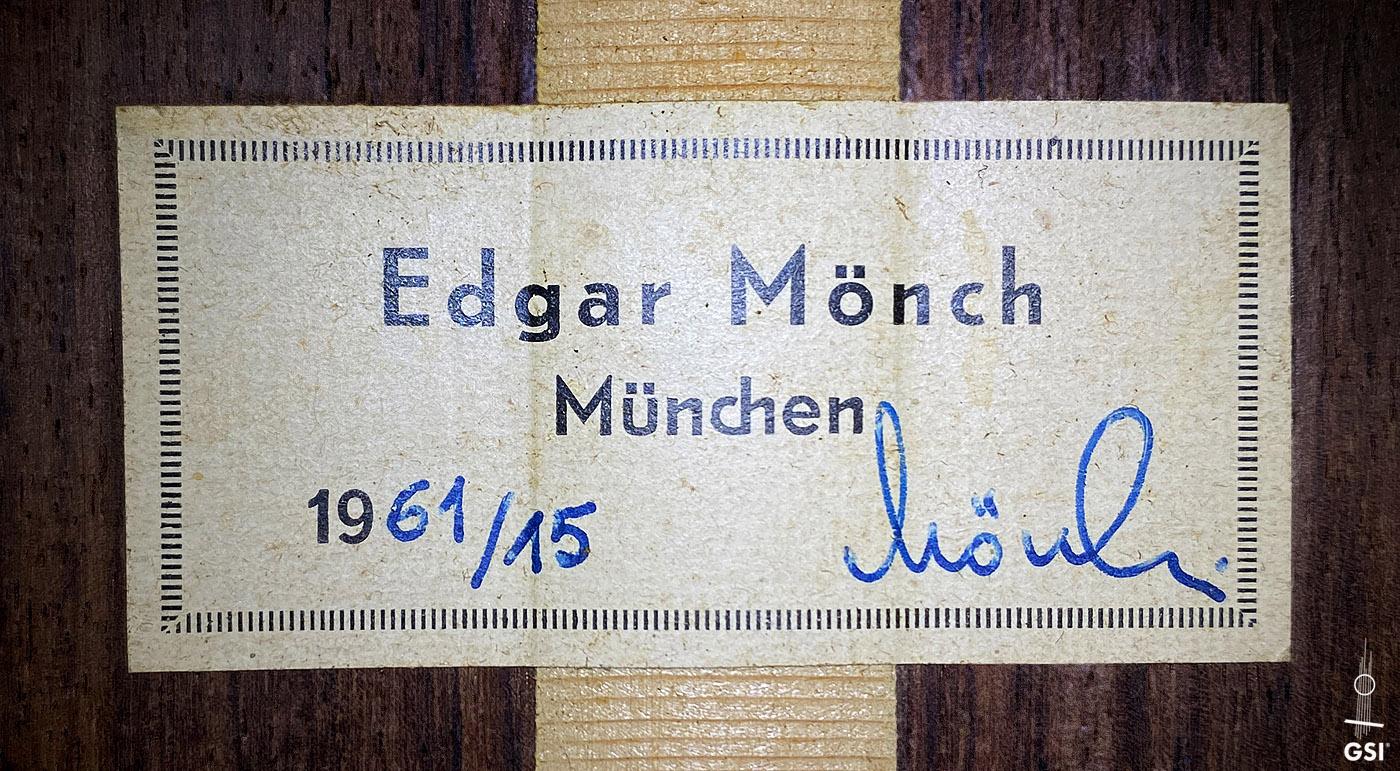 Edgar Mönch
München
1961/15
Mönch
GSI